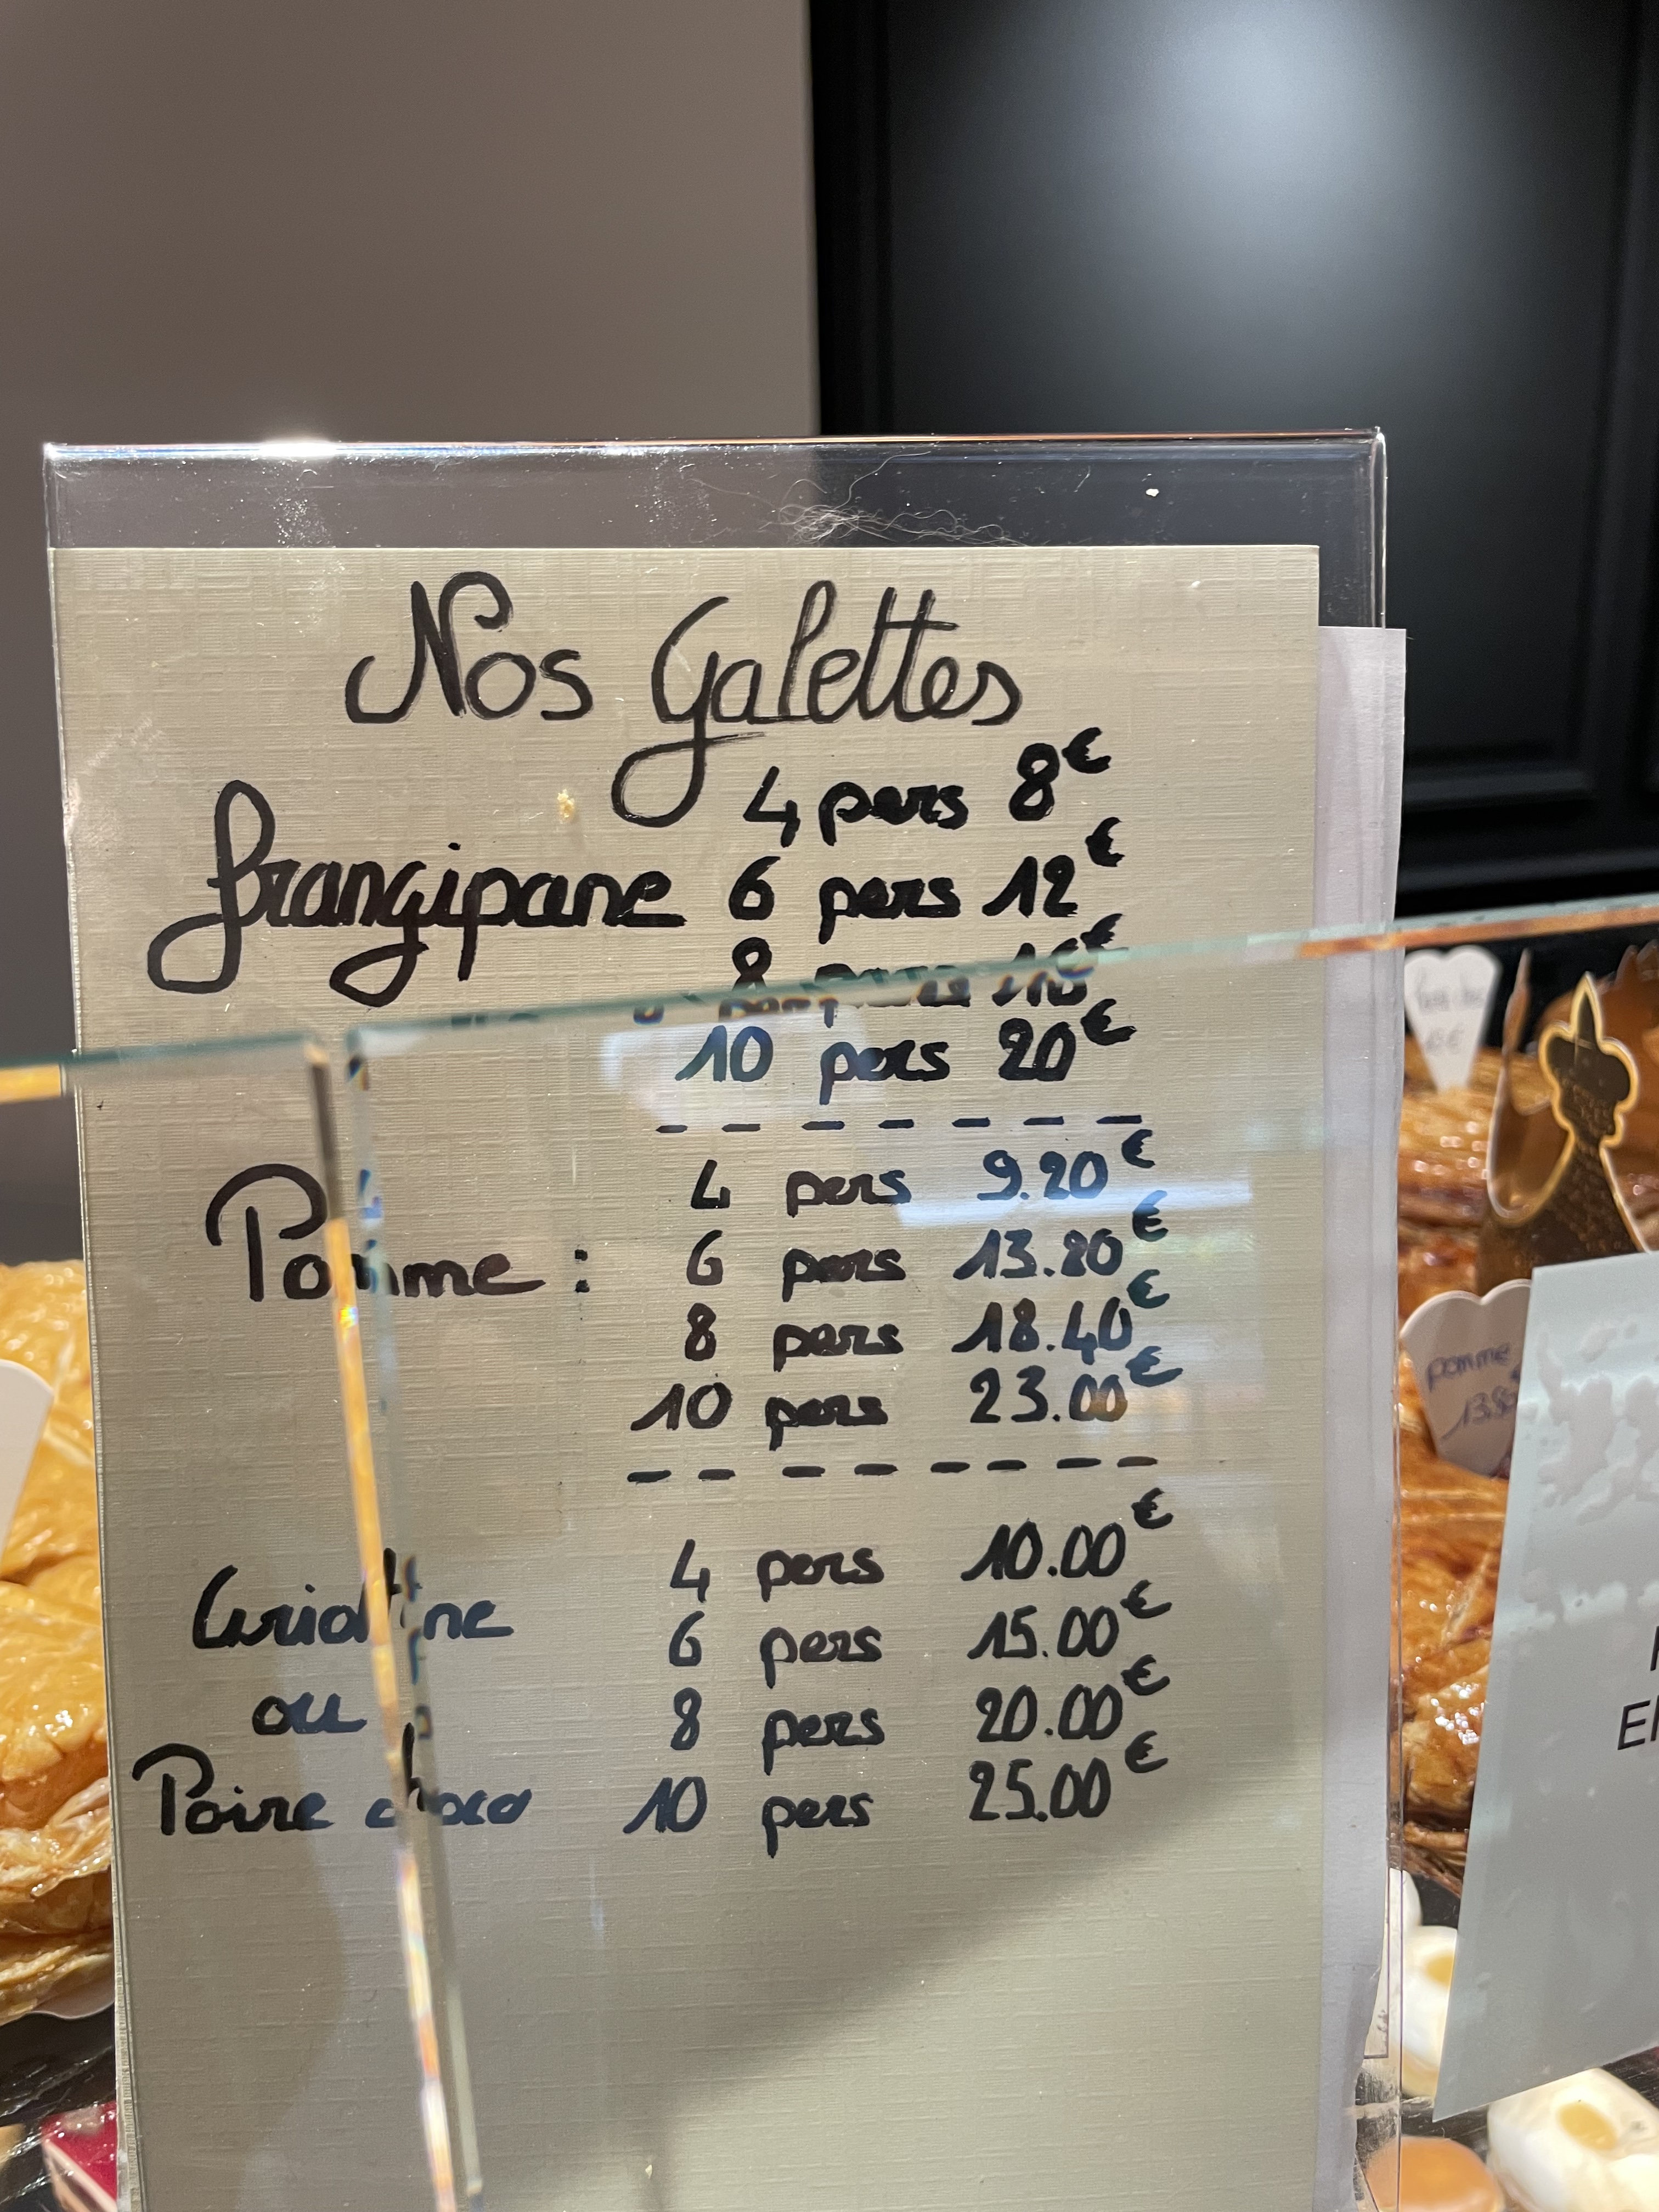 Nos Galettes
4 pers 8€
frangipane 6 pers 12€
8 pers 16€
10 pers 20€
- - - - - - -
4 pers 9.20€
Pomme : 6 pers 13.80€
8 pers 18.40€
10 pers 23.00€
- - - - - - - -
4 pers 10.00€
Griottine 6 pers 15.00€
ou 8 pers 20.00€
Poire choco 10 pers 25.00€
pomme
13.80